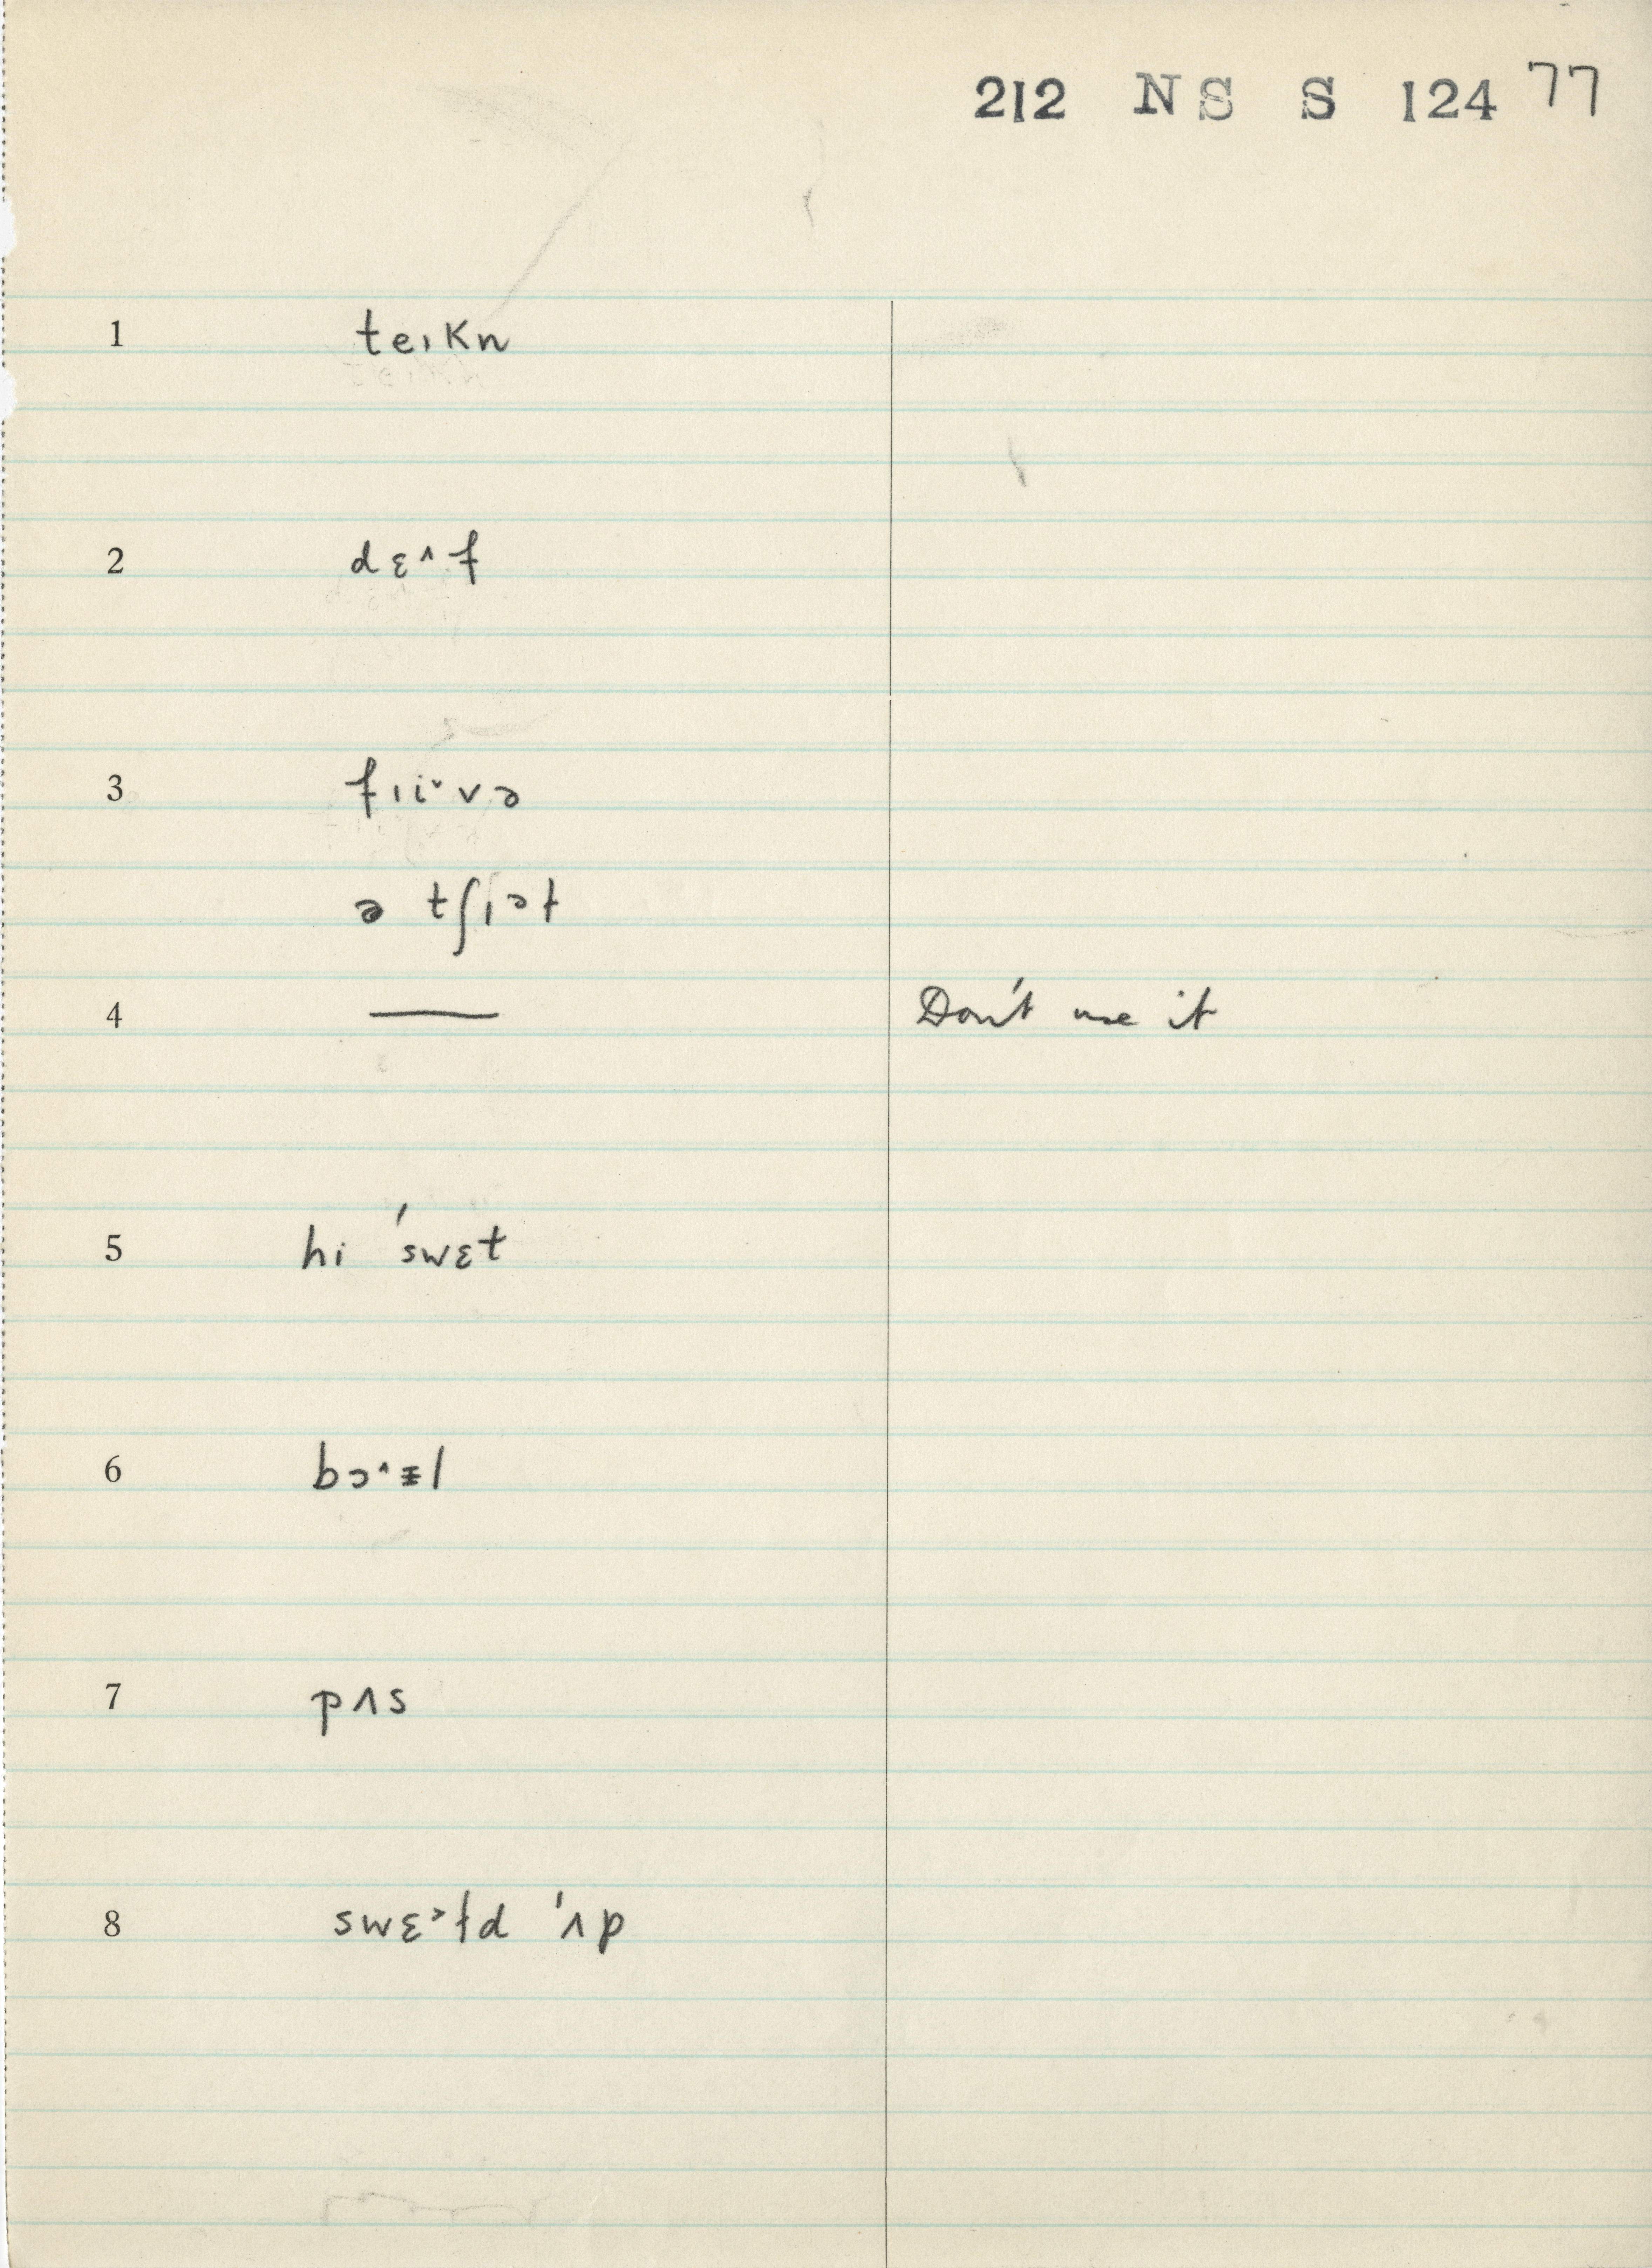 212 NS S 124 77
1 teɪkn
2 dɛ˄f
3 fɪi˅və
ə tʃɪət
4 — Don't use it
5 hi ˈswɛt
6 bɔ˄ᵻl
7 pʌs
8 swɛ˃ɫd ˈʌp